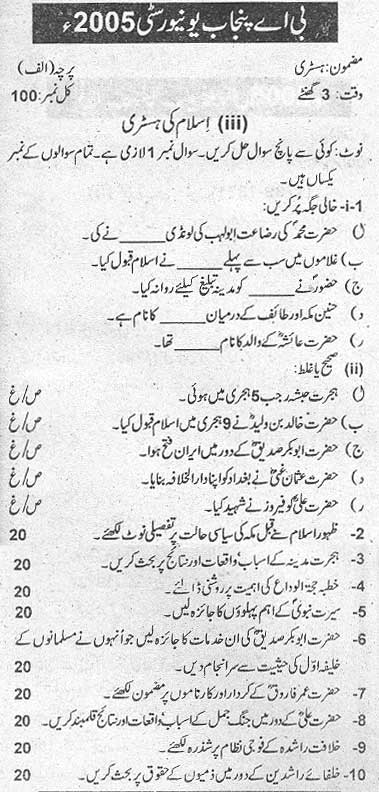 بی اے پنجاب یونیورسٹی 2005ء
مضمون: ہسٹری پرچہ (الف)
وقت: 3 گھنٹے کل نمبر: 100
(iii) اسلام کی ہسٹری
نوٹ: کوئی سے پانچ سوال حل کریں۔ سوال نمبر 1 لازمی ہے۔ تمام سوالوں کے نمبر
یکساں ہیں۔
1-i- خالی جگہ پُر کریں:
ا) حضرت محمدؐ کی رضاعت ابولہب کی لونڈی _____ نے کی۔
ب) غلاموں میں سب سے پہلے _____ نے اسلام قبول کیا۔
ج) حضورؐ نے _____ کو مدینہ تبلیغ کیلئے روانہ کیا۔
د) حنین مکہ اور طائف کے درمیان _____ کا نام ہے۔
ر) حضرت عائشہؓ کے والد کا نام _____ تھا۔
(ii) صحیح یا غلط:
ا) ہجرت حبشہ رجب 5 ہجری میں ہوئی۔ ص/غ
ب) حضرت خالد بن ولیدؓ نے 9 ہجری میں اسلام قبول کیا۔ ص/غ
ج) حضرت ابوبکر صدیقؓ کے دور میں ایران فتح ہوا۔ ص/غ
د) حضرت عثمان غنیؓ نے بغداد کو اپنا دارالخلافہ بنایا۔ ص/غ
ر) حضرت علیؓ کو فیروز نے شہید کیا۔ ص/غ
2- ظہور اسلام سے قبل مکہ کی سیاسی حالت پر تفصیلی نوٹ لکھئے۔ 20
3- ہجرت مدینہ کے اسباب، واقعات اور نتائج پر بحث کریں۔ 20
4- خطبہ حجۃ الوداع کی اہمیت پر روشنی ڈالئے۔ 20
5- سیرت نبویؐ کے اہم پہلوؤں کا جائزہ لیں۔ 20
6- حضرت ابوبکر صدیقؓ کی ان خدمات کا جائزہ لیں جو انہوں نے مسلمانوں کے
خلیفہ اوّل کی حیثیت سے سرانجام دیں۔ 20
7- حضرت عمر فاروقؓ کے کردار اور کارناموں پر مضمون لکھئے۔ 20
8- حضرت علیؓ کے دور میں جنگ جمل کے اسباب، واقعات اور نتائج قلمبند کریں۔ 20
9- خلافت راشدہ کے فوجی نظام پر شذرہ لکھئے۔ 20
10- خلفائے راشدین کے دور میں ذمیوں کے حقوق پر بحث کریں۔ 20